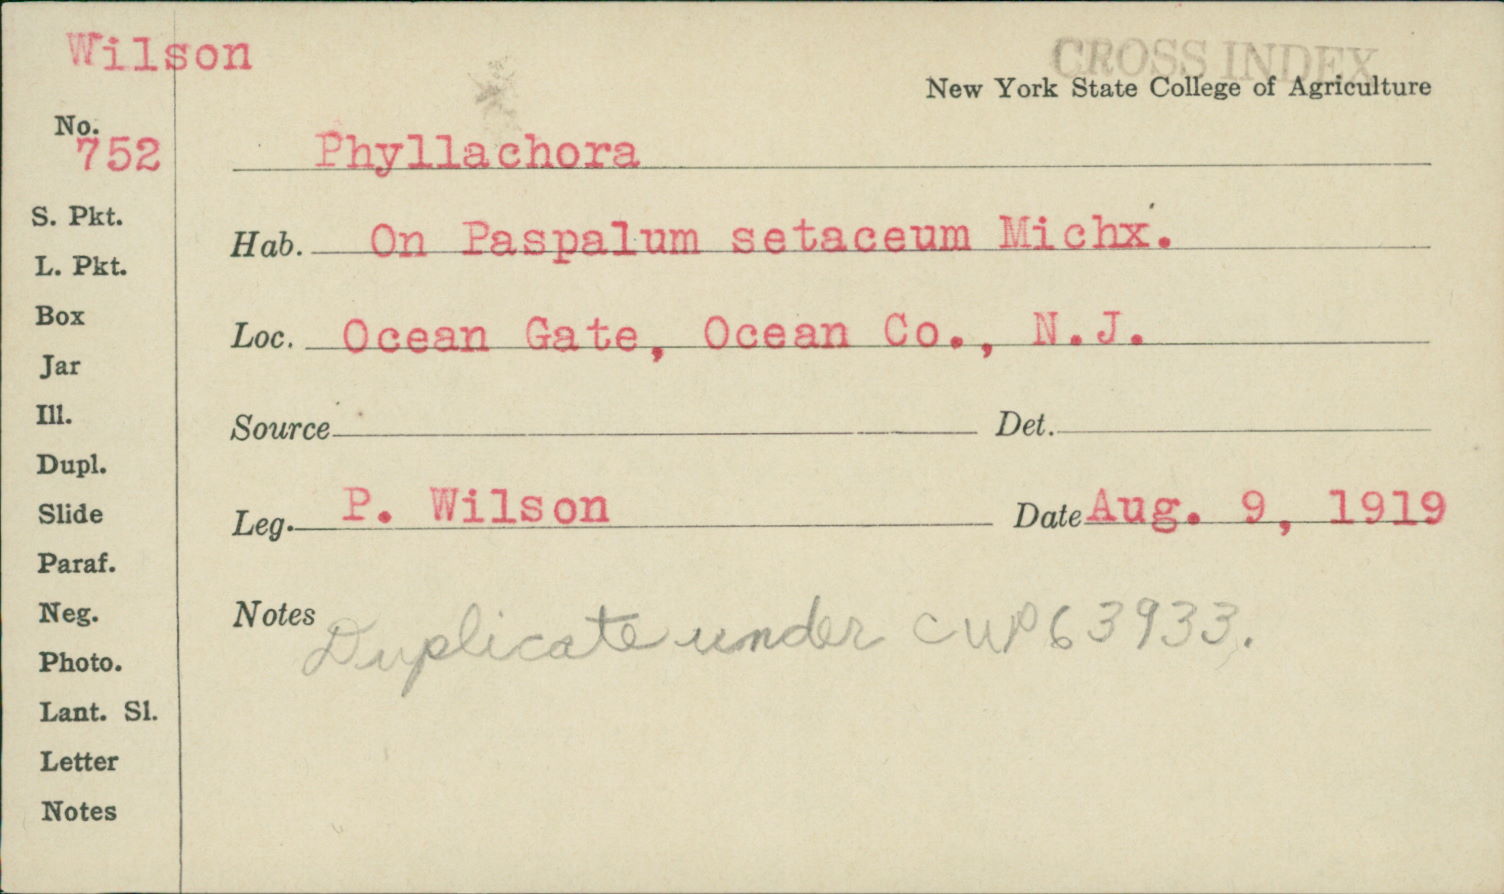 Wilson
CROSS INDEX
New York State College of Agriculture
No.
752
Phyllachora
S. Pkt.
Hab. On Paspalum setaceum Michx.
L. Pkt.
Box
Loc. Ocean Gate, Ocean Co., N.J.
Jar
Ill.
Source Det.
Dupl.
Slide
Leg. P. Wilson Date Aug. 9, 1919
Paraf.
Neg.
Notes Duplicate under CUP63933.
Photo.
Lant. Sl.
Letter
Notes